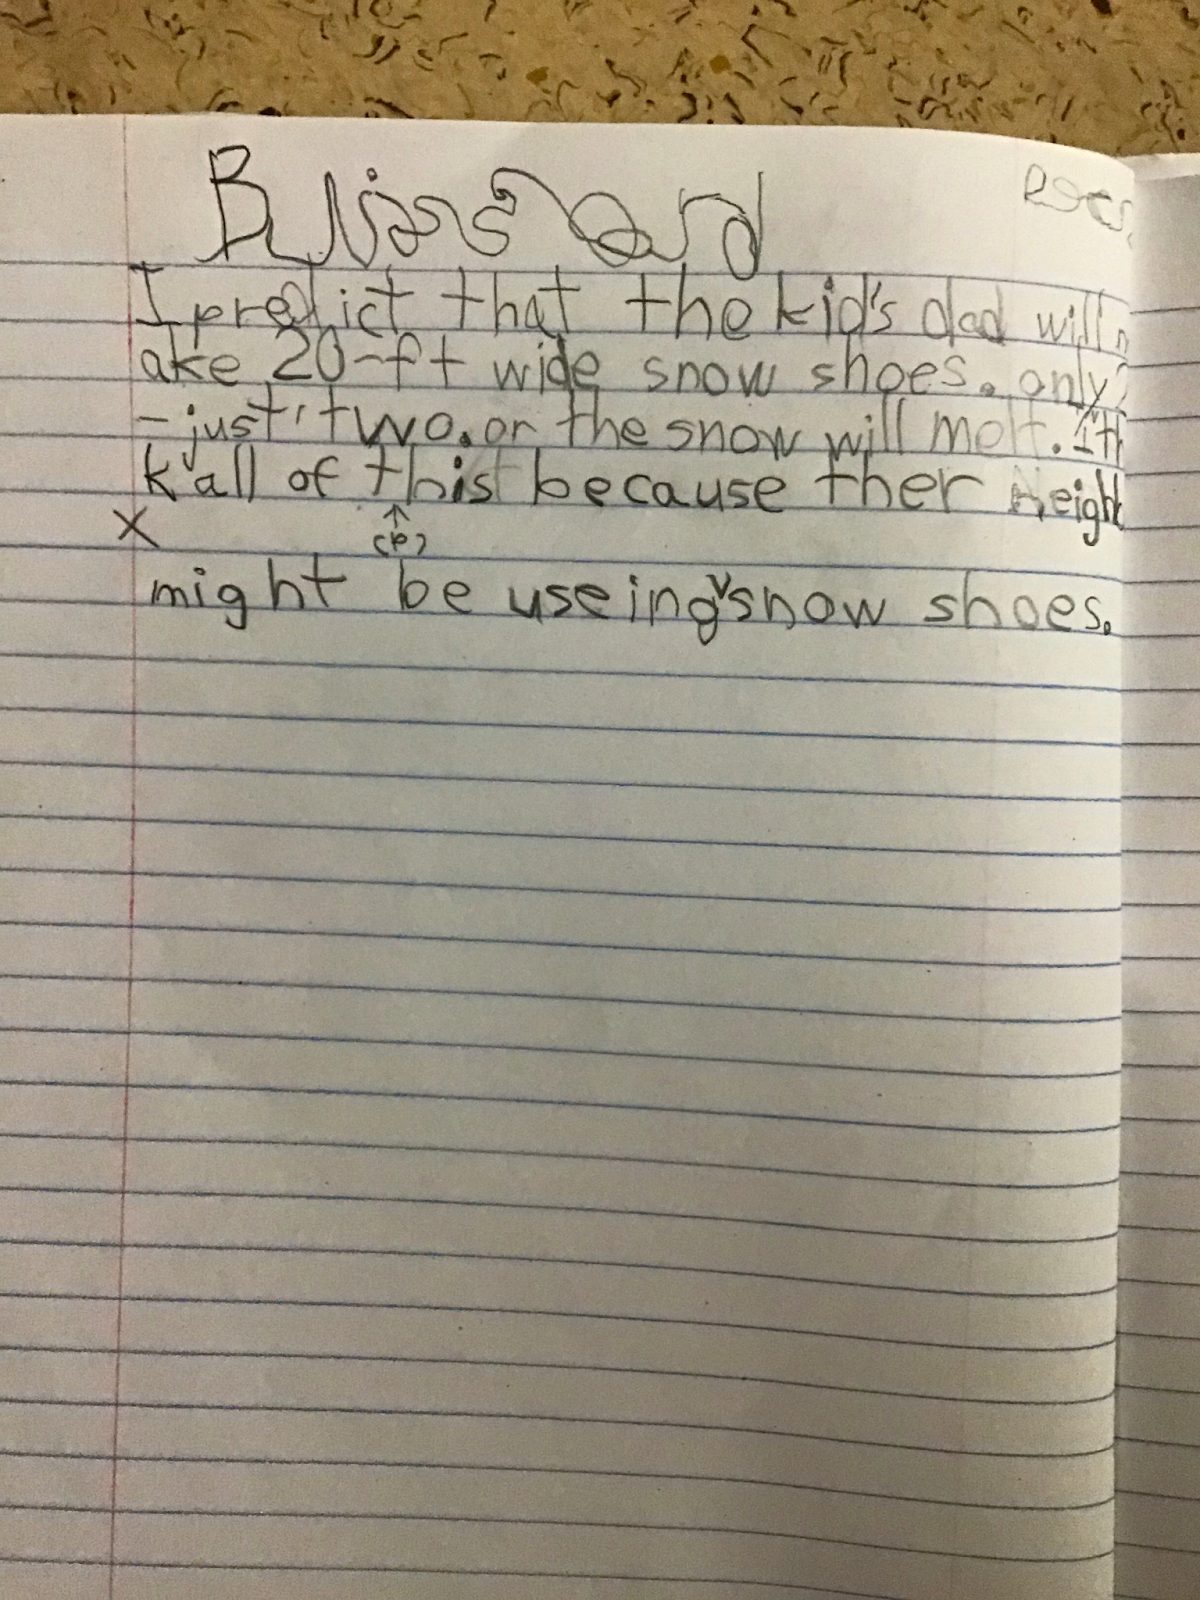 Blissard
I predict that the kid's dad will m
ake 20-ft wide snow shoes. only 2
-just two. or the snow will molt. I th
k all of this because ther neight
(P)
X
might be useing snow shoes.